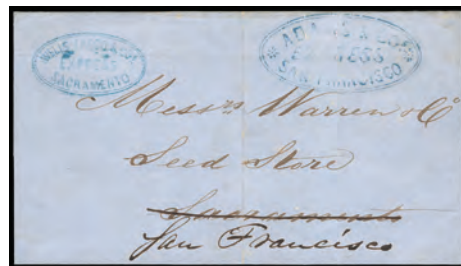 WELLS, FARGO & CO.
EXPRESS
SACRAMENTO
ADAMS & CO.
EXPRESS
SAN FRANCISCO
Messrs Warren & Co
Seed Store
Sacramento
San Francisco